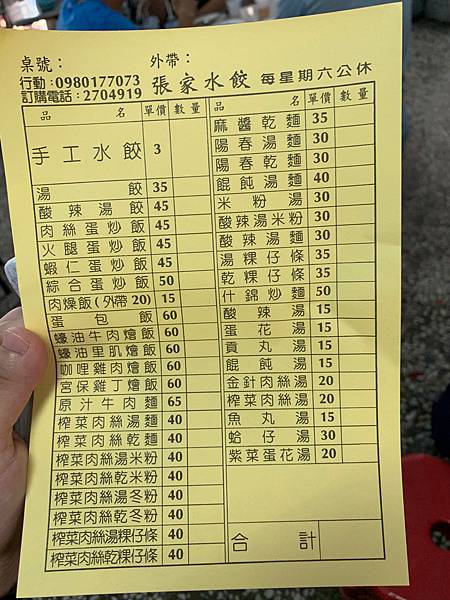 桌號： 外帶：
行動：0980177073
訂購電話：2704919
張家水餃 每星期六公休
品名 單價 數量
手工水餃 3
湯餃 35
酸辣湯餃 45
肉絲蛋炒飯 45
火腿蛋炒飯 45
蝦仁蛋炒飯 45
綜合蛋炒飯 50
肉燥飯(外帶20) 15
蛋包飯 60
蠔油牛肉燴飯 60
蠔油里肌燴飯 60
咖哩雞肉燴飯 60
宮保雞丁燴飯 60
原汁牛肉麵 65
榨菜肉絲湯麵 40
榨菜肉絲乾麵 40
榨菜肉絲湯米粉 40
榨菜肉絲乾米粉 40
榨菜肉絲湯冬粉 40
榨菜肉絲乾冬粉 40
榨菜肉絲湯粿仔條 40
榨菜肉絲乾粿仔條 40
品名 單價 數量
麻醬乾麵 35
陽春湯麵 30
陽春乾麵 30
餛飩湯麵 40
米粉湯 30
酸辣湯米粉 30
酸辣湯麵 30
湯粿仔條 35
乾粿仔條 35
什錦炒麵 50
酸辣湯 15
蛋花湯 15
貢丸湯 15
餛飩湯 15
金針肉絲湯 20
榨菜肉絲湯 20
魚丸湯 15
蛤仔湯 30
紫菜蛋花湯 20
合計